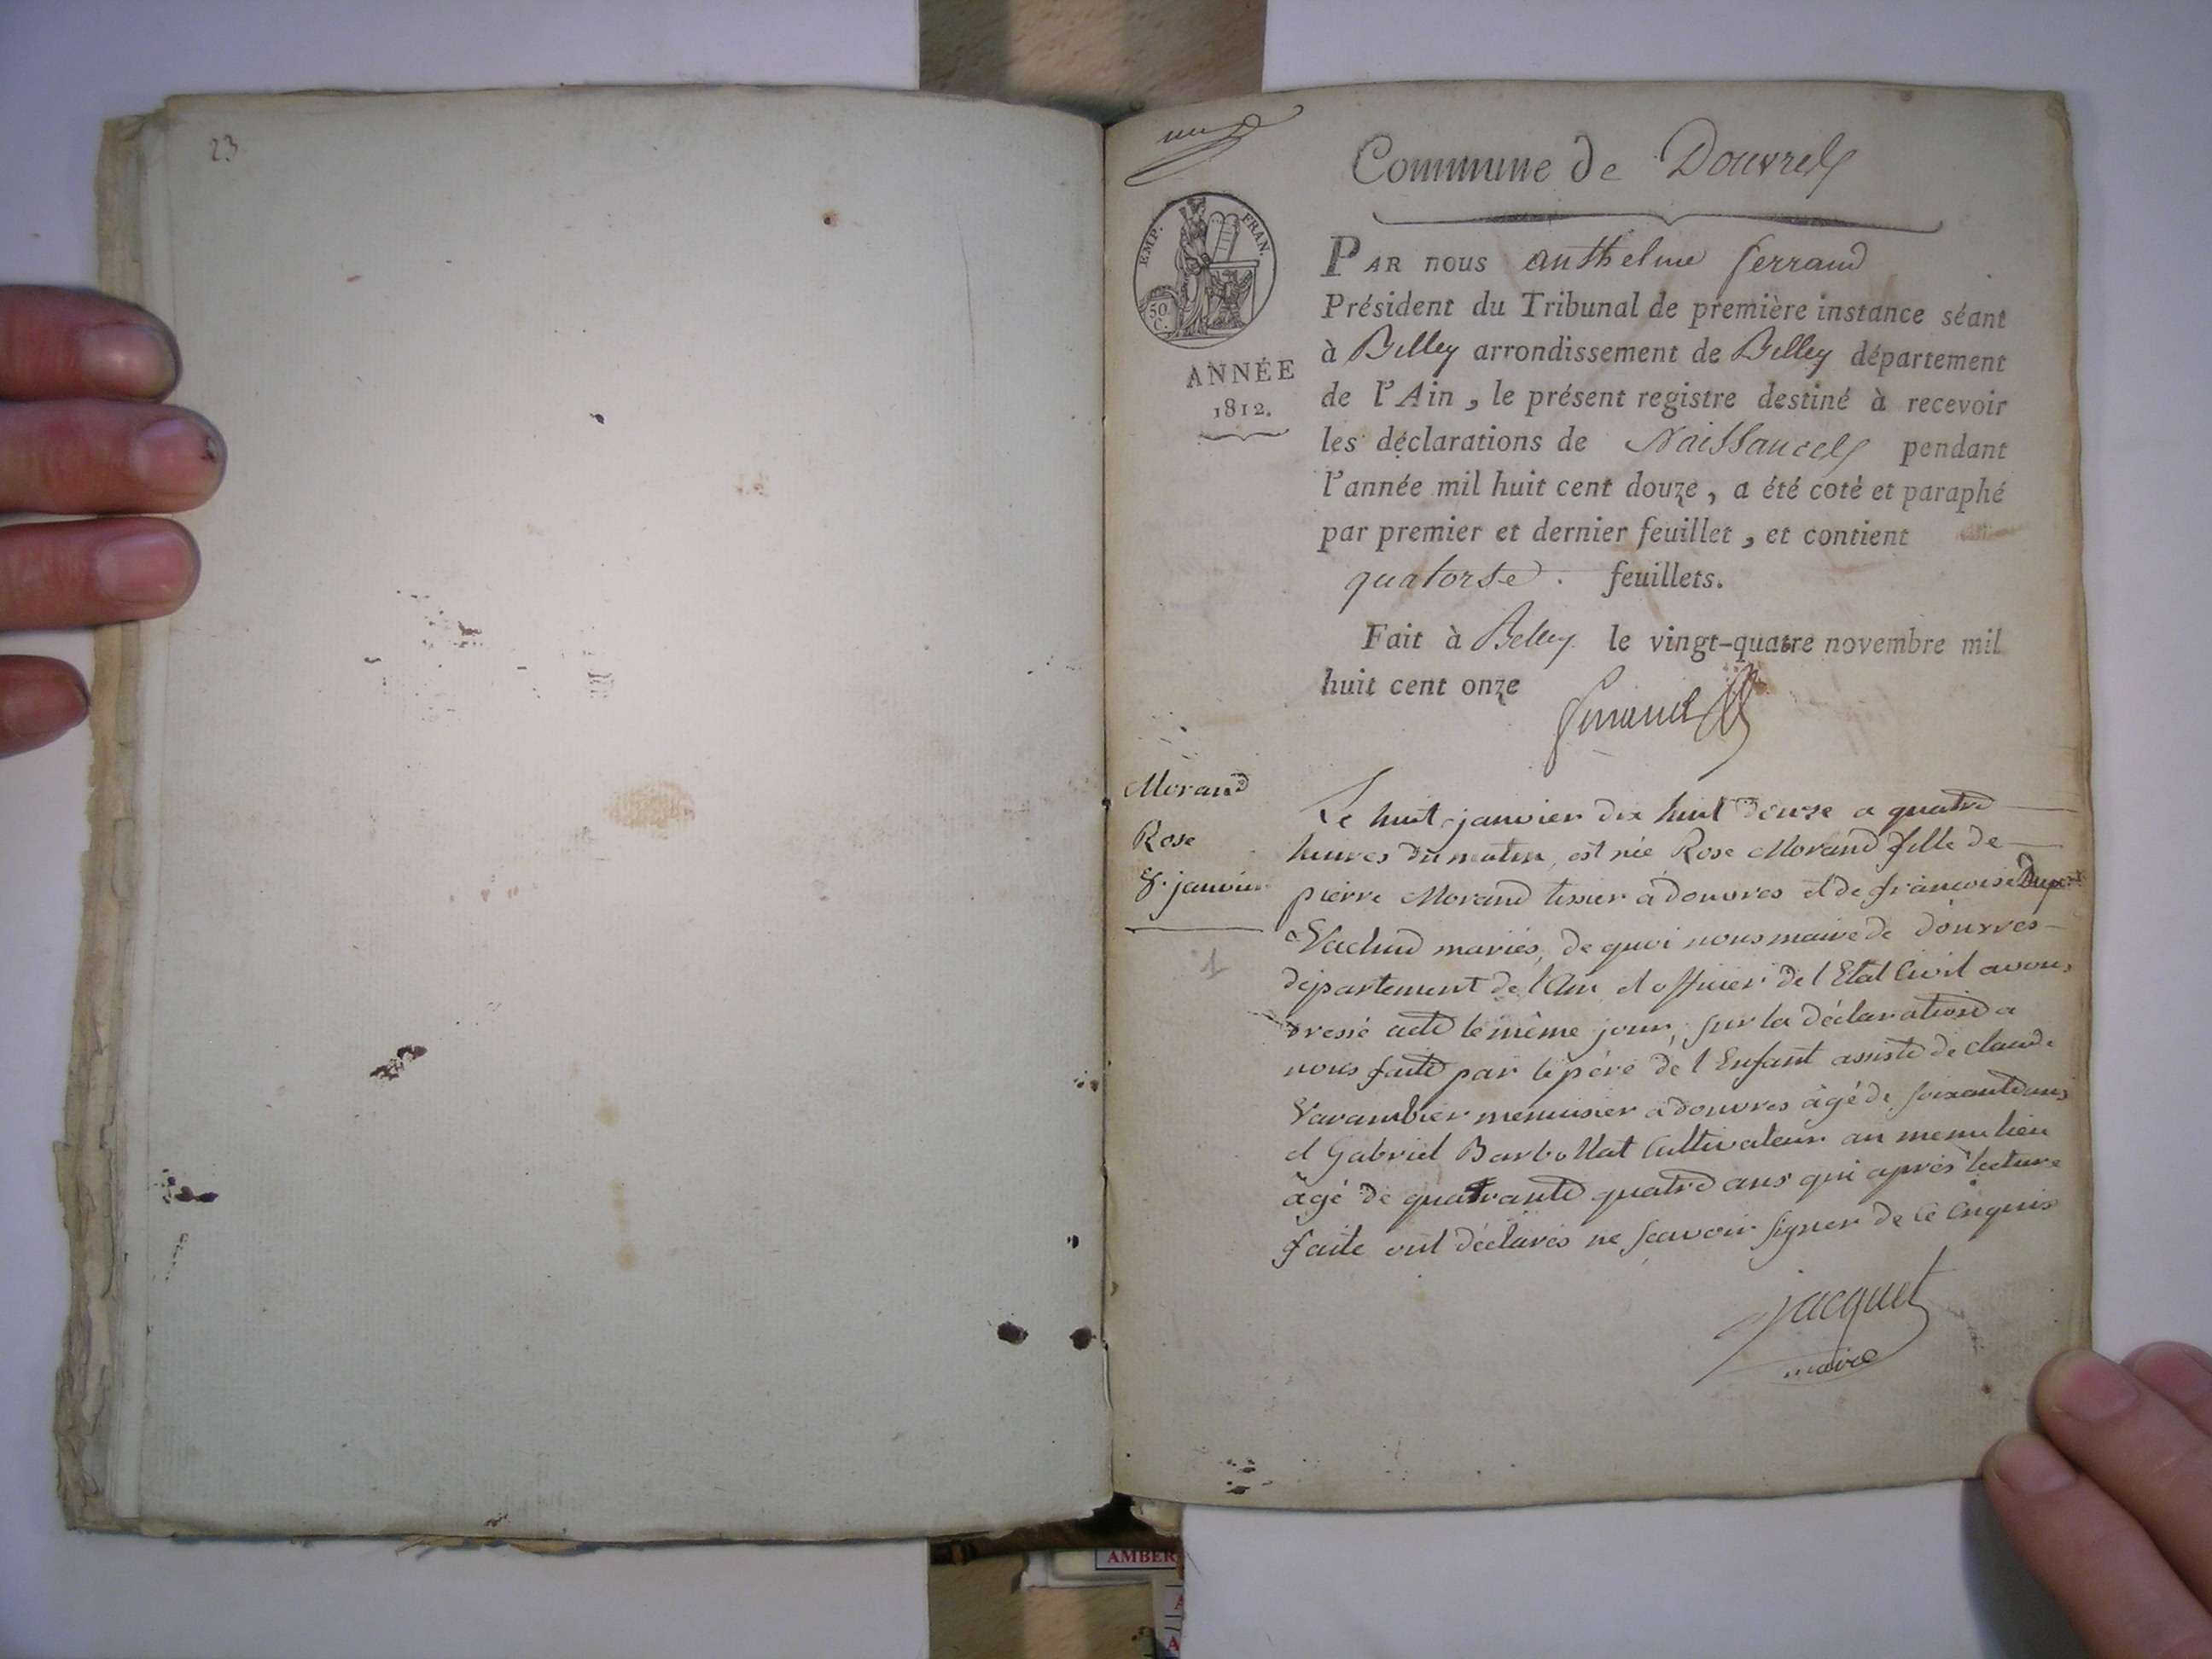 23
une
Commune de Douvres
EMP. FRAN.
50
C.
ANNÉE
1812.
PAR nous anthelme ferrand
Président du Tribunal de première instance séant
à Belley arrondissement de Belley département
de l'Ain, le présent registre destiné à recevoir
les déclarations de Naissances pendant
l'année mil huit cent douze, a été coté et paraphé
par premier et dernier feuillet, et contient
quatorse. feuillets.
Fait à Belley le vingt-quatre novembre mil
huit cent onze
ferrand
Morand
Rose
8. janvier
1
Le huit janvier dix huit douze a quatre
heures du matin, est née Rose Morand fille de
pierre Morand tissier a douvres et de francoise
Vachud mariés, de quoi nous maire de douvres
département de l'Ain et officier de l'Etat Civil avons
dressé acte le même jour, sur la déclaration a
nous faite par le père de l'Enfant assisté de claude
Varambier menuisier a douvres âgé de soixante ans
et Gabriel Barbollat Cultivateur au meme lieu
âgé de quatrante quatre ans qui après lecture
faite ont déclarés ne scavoir signer de ce Enquis
jacquet
maire
AMBER
A
A